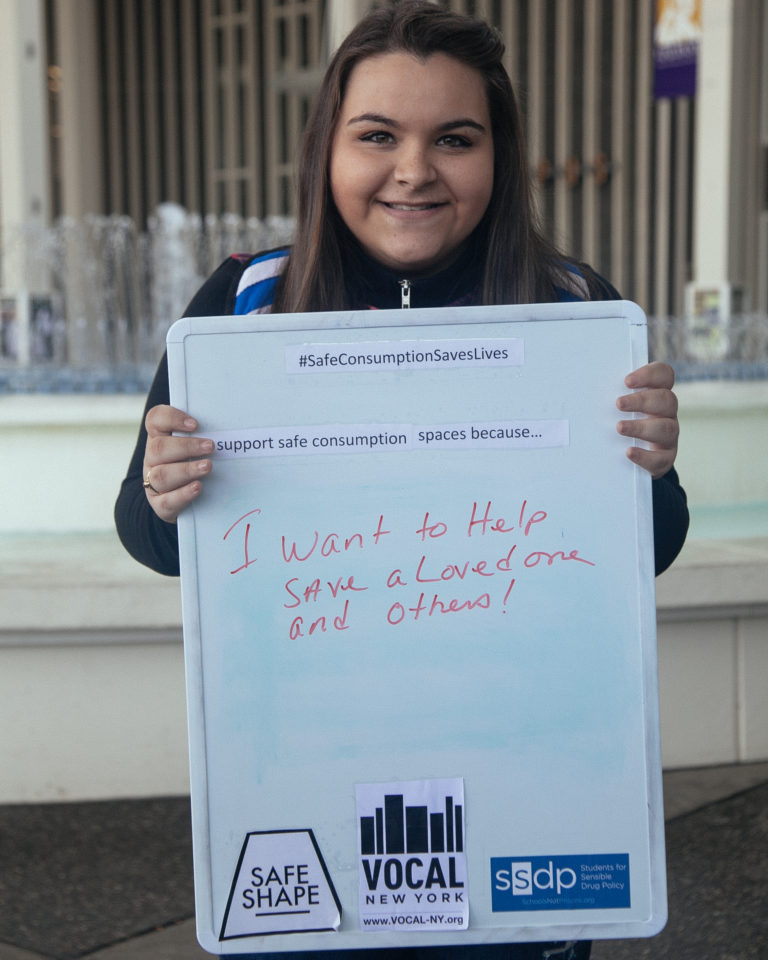 #SafeConsumptionSavesLives
support safe consumption spaces because...
I want to Help
SAve a Loved one
and others!
SAFE
SHAPE
VOCAL
NEW YORK
www.VOCAL-NY.org
ssdp
Students for
Sensible
Drug Policy
SchoolsNotPrisons.org